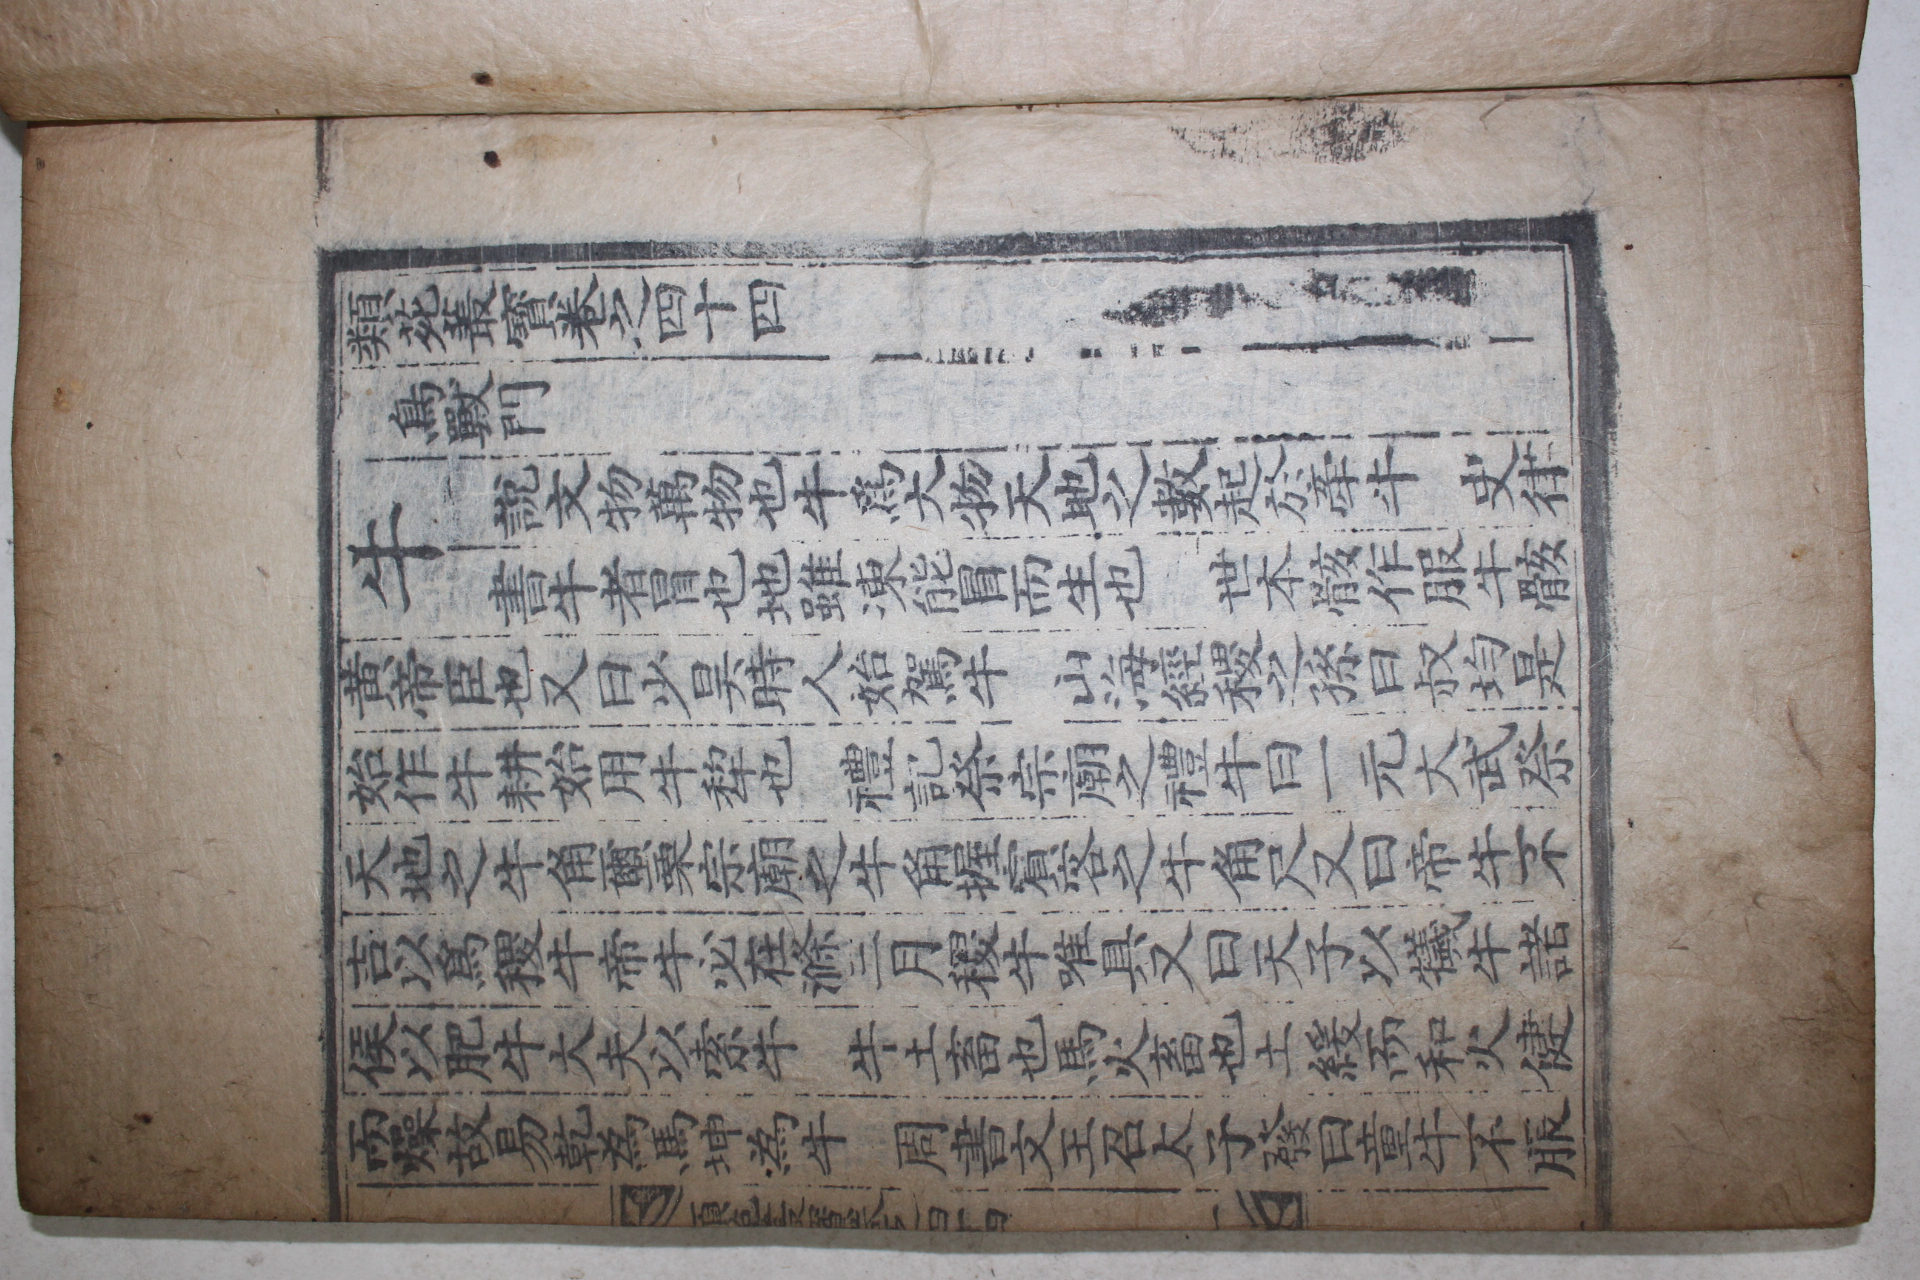 類苑叢寶卷之四十四
鳥獸門
牛
說文物萬物也牛爲大物天地之數起於牽牛 史律
書牛者冒也地雖凍能冒而生也 世本骸作服牛骸
黃帝臣也又曰少昊時人始駕牛 山海經稷之孫曰叔均是
始作牛耕始用牛犂也 禮記祭宗廟之禮牛曰一元大武祭
天地之牛角蠒栗宗廟之牛角握賓客之牛角尺又曰帝牛不
吉以爲稷牛帝牛必在滌三月稷牛唯具又曰天子以犧牛諸
侯以肥牛大夫以索牛 牛土畜也馬火畜也土緩而和火健
而燥故易乾為馬坤為牛 周書文王召太子發曰童牛不服
類苑叢寶卷之四十四 一